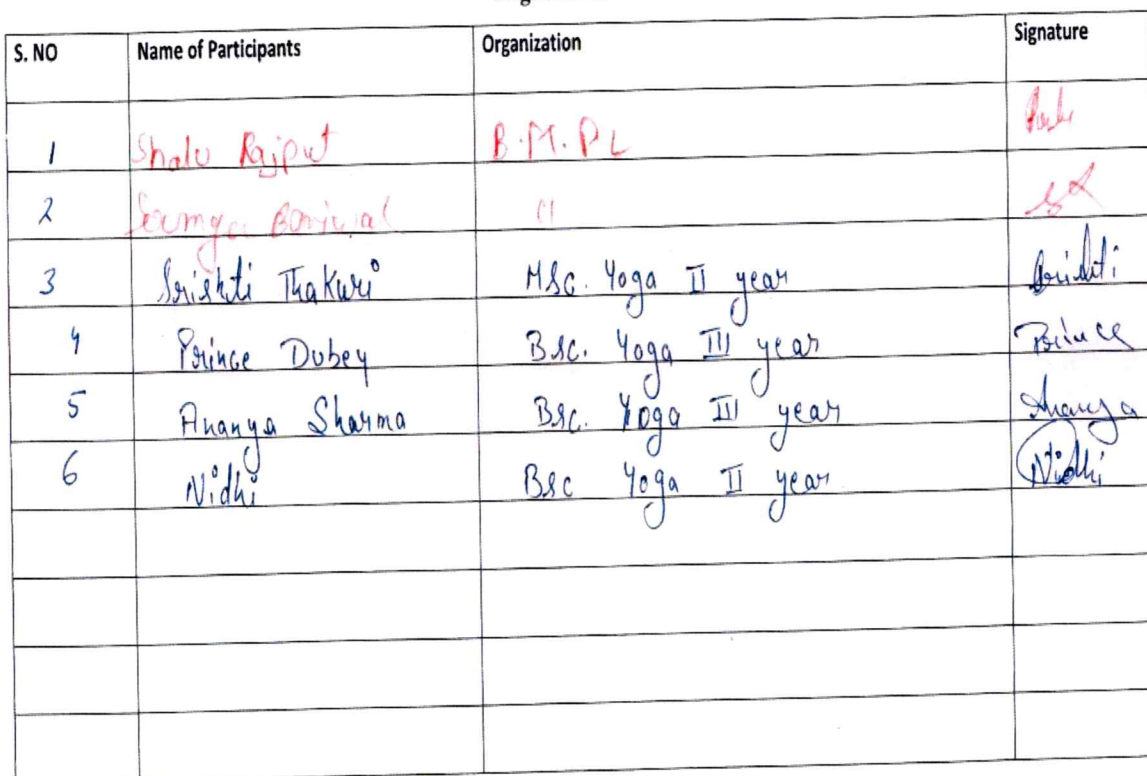 S. NO Name of Participants Organization Signature
1 Shalu Rajput B.M.PL
2 Soumya "
3 Srishti Thakuri MSc. Yoga II year Srishti
4 Prince Dubey Bsc. Yoga III year Prince
5 Ananya Sharma Bsc. Yoga III year Ananya
6 Nidhi Bsc Yoga II year Nidhi